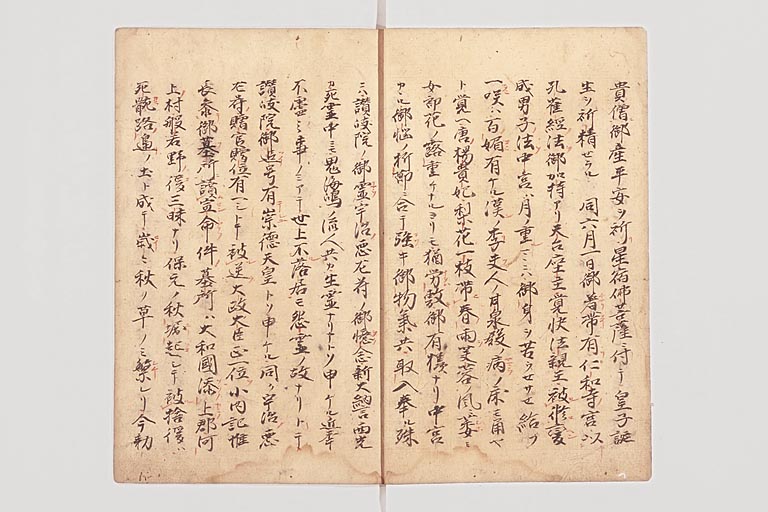 貴僧御座平安ヲ祈星宿佛菩薩ニ付テ皇子誕
生ヲ祈精セラル 同六月一日御着帯有仁和寺宮以
孔雀経法御加持アリ天台座主覚快法親王被修変
成男子法中宮ハ月ノ重ニハ御身ヲ苦セサセ給フ
一咲ハ百媚有ケル漢ノ李夫人ノ月泉殿ノ病ノ床モ角ヘ
ト覚ヘ唐楊貴妃梨花一枝帯春雨芙蓉ノ風ニ委ミ
女郎花ノ露重ケナルヨリモ猶労敷御有様ナリ中宮
カヽル御悩ノ折節ニ合テ強キ御物氣共取入奉ル殊
ニハ讃岐院ノ御霊宇治悪左府ノ御憶念新大納言西光
カ死霊中ニモ鬼海嶋ノ流人共カ生霊ナリナトソ申ケル近年
不霊ミ事ノミアテ世上不落居モ怨霊ノ故ナリトテ
讃岐院御追号有崇徳天皇トソ申ケル同ク宇治悪
左府贈官贈位有ヘシトテ被送大政大臣正一位小内記惟
長参御墓所讀宣命件墓所ハ大和國添上郡河
上村般若野後三昧ナリ保元ノ秋堀起シテ被捨後ハ
死骸路邊ノ土ト成テ歳々秋ノ草ノミ繁レリ今勅